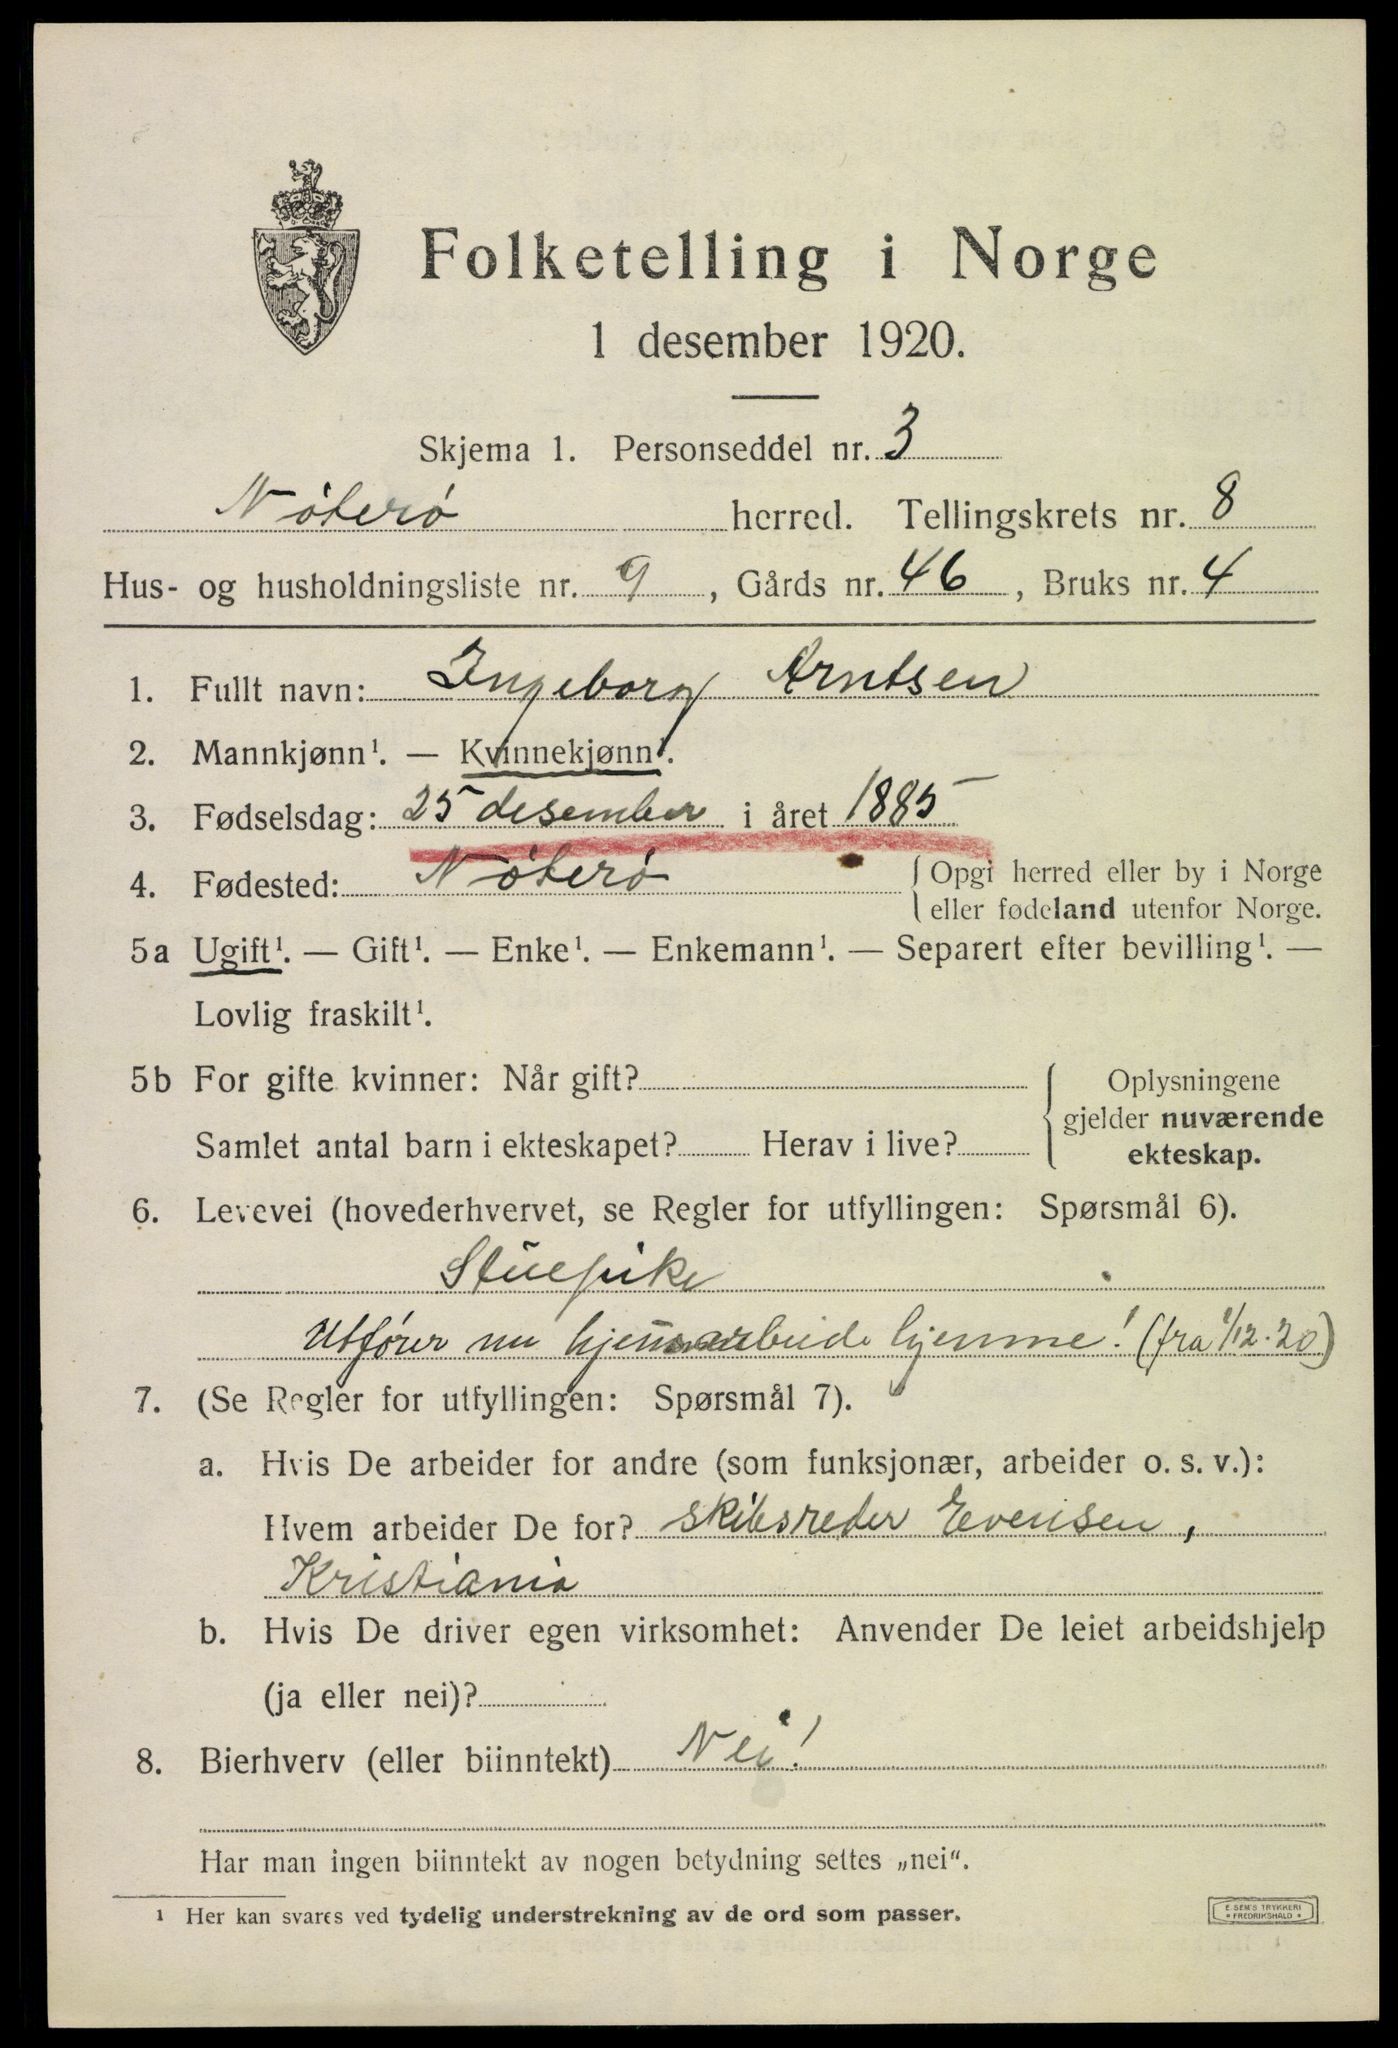 Folketelling i Norge
1 desember 1920.
Skjema 1. Personseddel nr. 3
Nøterø herred. Tellingskrets nr. 8
Hus- og husholdningsliste nr. 9, Gårds nr. 46, Bruks nr. 4
1. Fullt navn: Ingeborg Arntsen
2. Mannkjønn¹. — Kvinnekjønn¹.
3. Fødselsdag: 25 desember i året 1885
4. Fødested: Nøterø {Opgi herred eller by i Norge
eller fødeland utenfor Norge.
5a Ugift¹. — Gift¹. — Enke¹. — Enkemann¹. — Separert efter bevilling¹. —
Lovlig fraskilt¹.
5b For gifte kvinner: Når gift? { Oplysningene
gjelder nuværende
Samlet antal barn i ekteskapet? Herav i live? ekteskap.
6. Levevei (hovederhvervet, se Regler for utfyllingen: Spørsmål 6).
Stuepike
Utfører nu husarbeide hjemme! (fra 1/12-20)
7. (Se Regler for utfyllingen: Spørsmål 7).
a. Hvis De arbeider for andre (som funksjonær, arbeider o. s. v.):
Hvem arbeider De for? skibsreder Evensen,
Kristiania
b. Hvis De driver egen virksomhet: Anvender De leiet arbeidshjelp
(ja eller nei)?
8. Bierhverv (eller biinntekt) Nei!
Har man ingen biinntekt av nogen betydning settes „nei“.
¹ Her kan svares ved tydelig understrekning av de ord som passer.
E. SEM'S TRYKKERI
• FREDRIKSHALD •